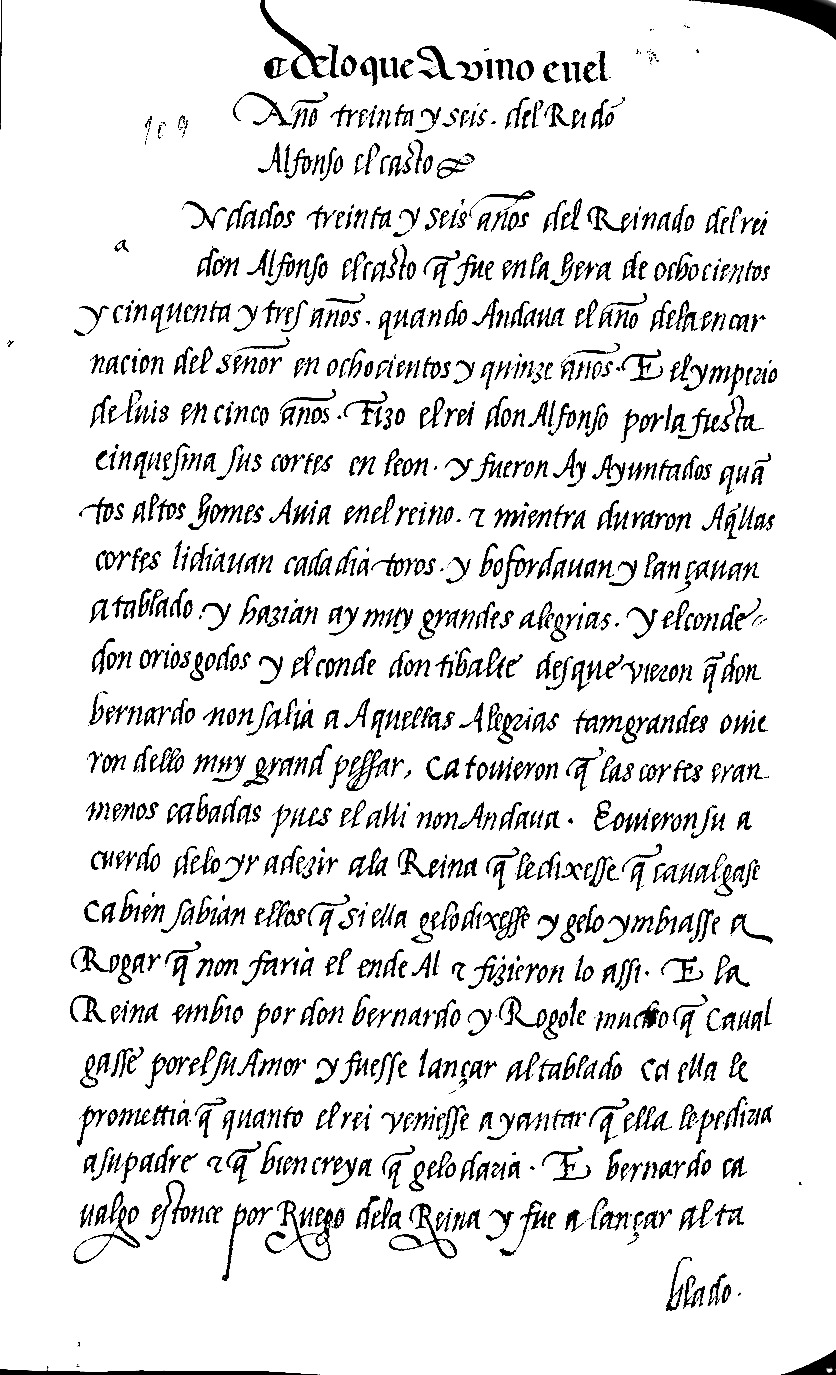 ¶ de lo que Avino enel
109
Año treinta y seis. del Rei dõ
Alfonso el casto
Ndados treinta y seis años del Reinado del rei
a
don Alfonso el casto q̃ fue enla Hera de ochocientos
y cinquenta y tres años. quando Andaua el año dela encar
nacion del señor en ochocientos y quinze años. E el ymperio
de luis en cinco años. Fizo el rei don Alfonso por la fiesta
cinquesma sus cortes en leon. y fueron Ay Ayuntados quã
tos altos Homes Auia enel reino. ⁊ mientra duraron Aq̃llas
cortes lidiauan cada dia toros. y bofordauan y lançauan
a tablado. y hazian ay muy grandes alegrias. Y el conde
don orios godos y el conde don tibalte desque vieron q̃ don
bernardo non salia a Aquellas Alegrias tam grandes ouie
ron dello muy grand pessar, ca touieron q̃ las cortes eran
menos cabadas pues el alli non Andaua. E ouieron su a
cuerdo delo yr a dezir ala Reina q̃ le dixesse q̃ caualgase
ca bien sabian ellos q̃ si ella gelo dixesse y gelo ymbiasse a
Rogar q̃ non faria el ende Al ⁊ fizieron lo assi. E la
Reina embio por don bernardo y Rogole mucho q̃ caual
gasse por el su Amor y fuesse lançar al tablado ca ella le
promettia q̃ quanto el rei veniesse a yantar q̃ ella le pediria
a su padre ⁊ q̃ bien creya q̃ gelo daria. E bernardo ca
ualgo estonce por Ruego dela Reina y fue a lançar al ta
blado.